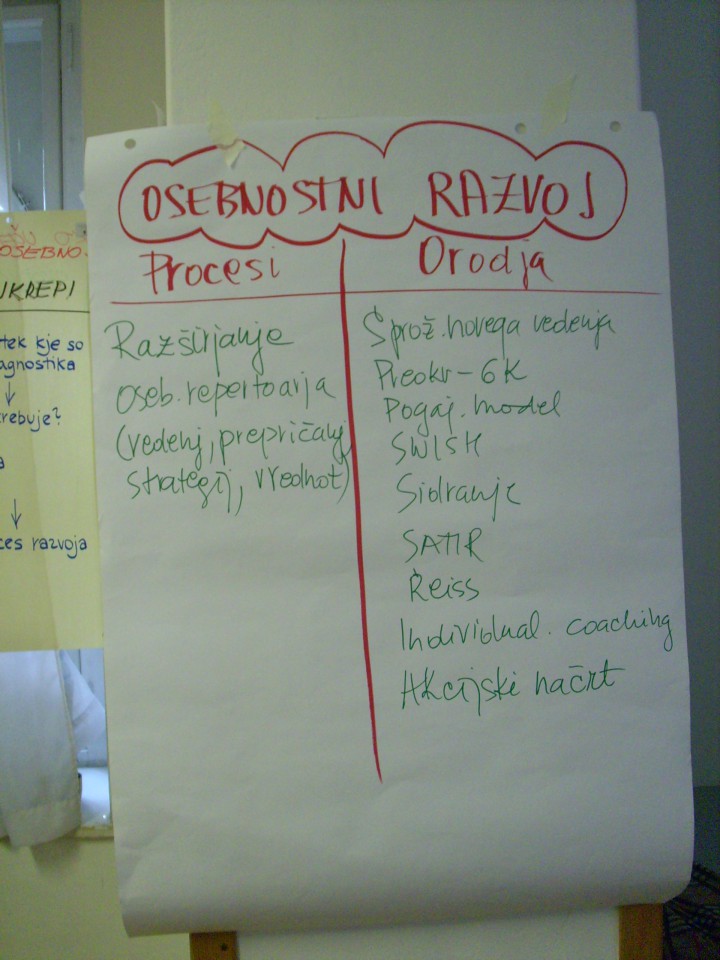 OSEBNOSTNI RAZVOJ
Procesi
Razširjanje
oseb. repertoarja
(vedenj, prepričanj,
strategij, vrednot)
Orodja
Sprož. novega vedenja
Preokv - 6K
Pogaj. model
SWISH
Sidranje
SATIR
Reiss
Individual. coaching
Akcijski načrt
OSEBNO
UKREPI
tek kje so
agnostika
rebuje?
a
ces razvoja